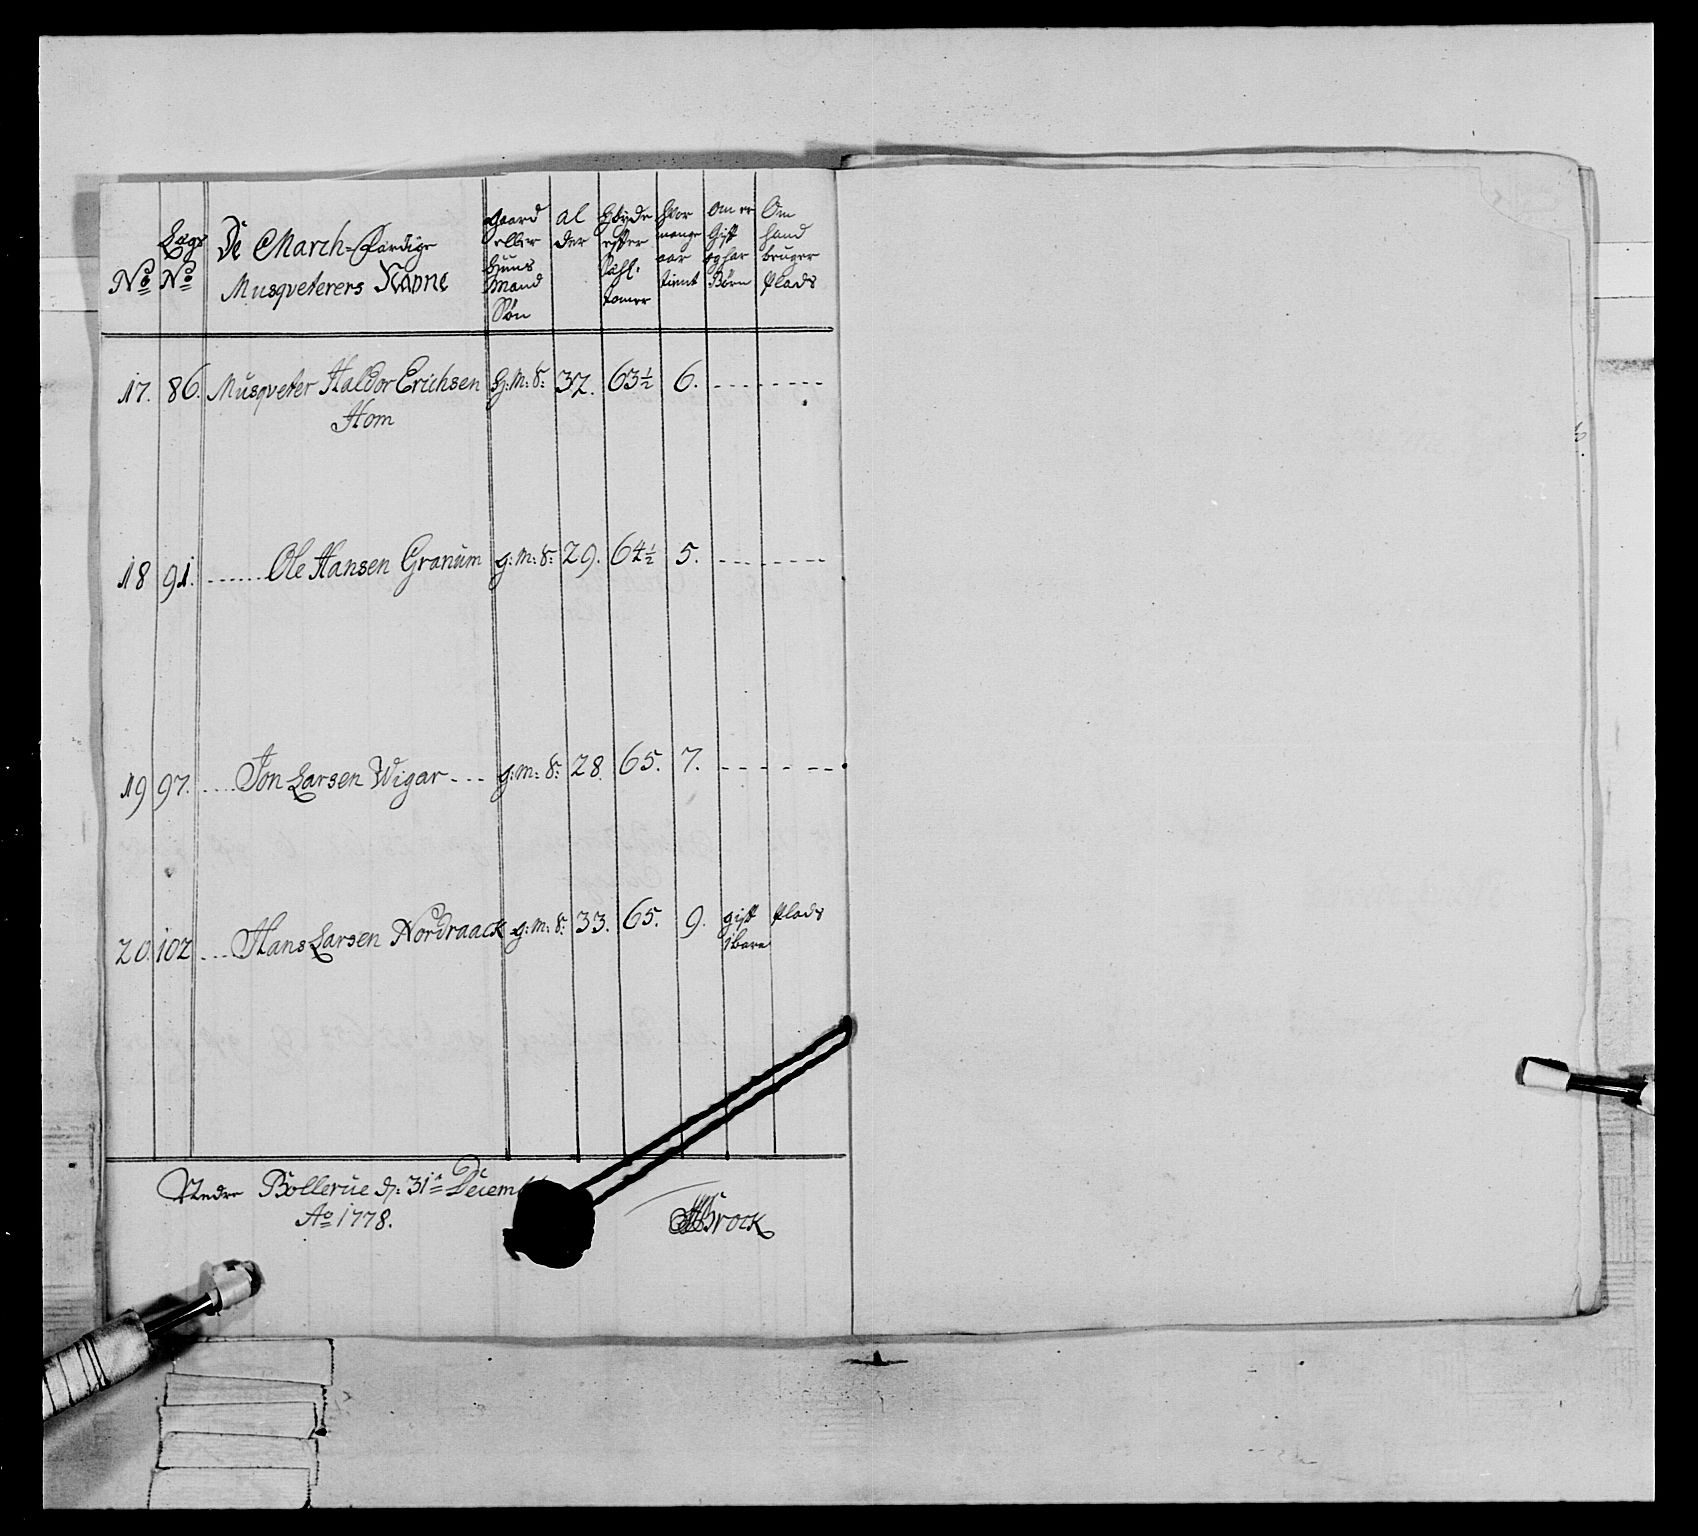 No
Lægs No
De March-Færdige
Musqueterers Navne
Gaard
eller
Huus
Mand
Søn
Al
der
Høyde
efter
Sahl.
tomer
Hvor
mange
aar
tient
Om er
Gift
og har
Børn
Om
hand
bruger
Plads
17. 86. Musqueter Haldor Erichsen G: M: S: 32. 63½ 6. - - - - - - - -
Hom
18 91. ...... Ole Hansen Granum g: m: S: 29. 64½ 5. - - - - - - - -
19 97. .... Jon Larsen Wigar - - - g: m: S: 28. 65. 7. - - - - - - -
20. 102 ... Hans Larsen Nordraack g: m: S: 33. 65. 9. gift Plads
1 barn
Nedre Bollerue d: 31te Decem
Ao 1778.
Brock